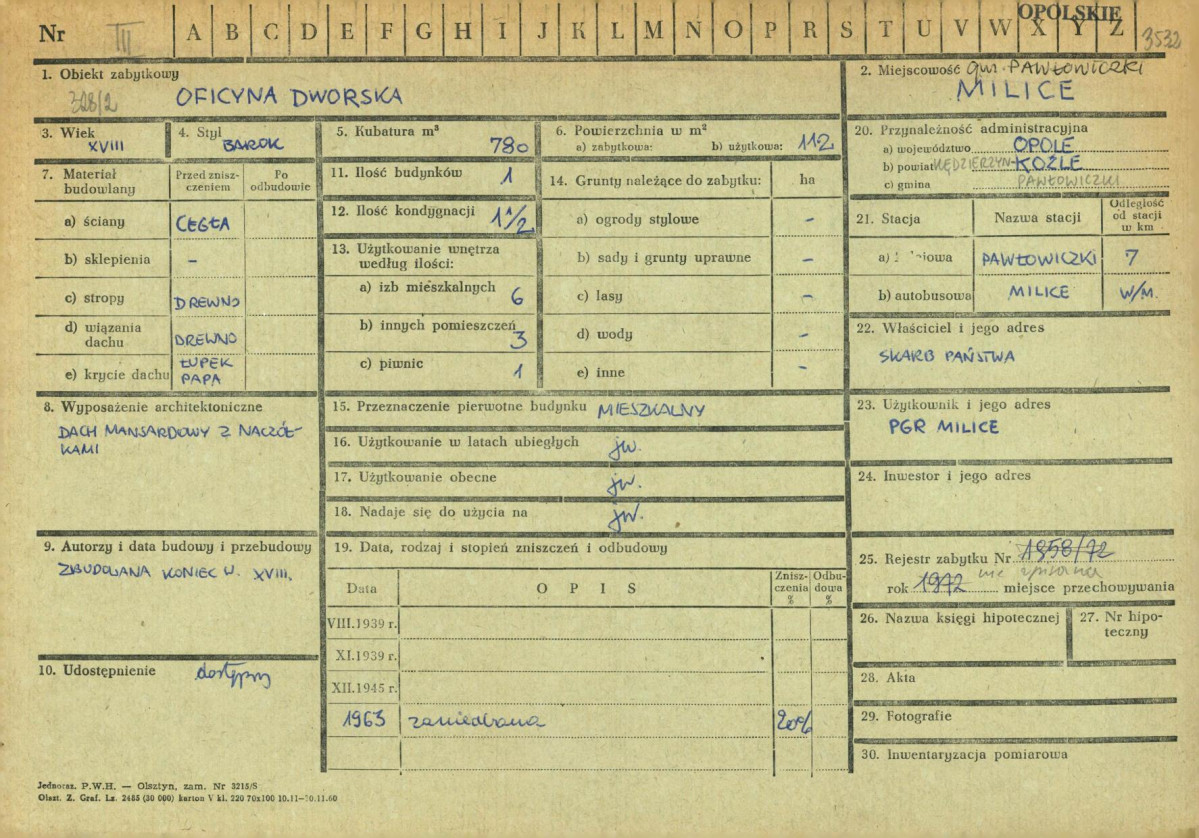 Nr III A B C D E F G H I J K L M N O P R S T U V W X Y Z OPOLSKIE 3532
1. Obiekt zabytkowy
328/2 OFICYNA DWORSKA
2. Miejscowość gm. PAWŁOWICZKI
MILICE
3. Wiek
XVIII
4. Styl
BAROK
5. Kubatura m³
780
6. Powierzchnia w m²
a) zabytkowa: b) użytkowa: 112
7. Materiał budowlany
Przed zniszczeniem
Po odbudowie
a) ściany CEGŁA
b) sklepienia –
c) stropy DREWNO
d) wiązania dachu DREWNO
e) krycie dachu ŁUPEK PAPA
8. Wyposażenie architektoniczne
DACH MANSARDOWY Z NACZÓŁ-
KAMI
9. Autorzy i data budowy i przebudowy
ZBUDOWANA KONIEC W. XVIII.
10. Udostępnienie dostępny
11. Ilość budynków 1
12. Ilość kondygnacji 1 1/2
13. Użytkowanie wnętrza
według ilości:
a) izb mieszkalnych 6
b) innych pomieszczeń 3
c) piwnic 1
14. Grunty należące do zabytku: ha
a) ogrody stylowe –
b) sady i grunty uprawne –
c) lasy –
d) wody –
e) inne –
15. Przeznaczenie pierwotne budynku MIESZKALNY
16. Użytkowanie w latach ubiegłych jw.
17. Użytkowanie obecne jw.
18. Nadaje się do użycia na jw.
19. Data, rodzaj i stopień zniszczeń i odbudowy
Data OPIS Znisz-czenia % Odbu-dowa %
VIII.1939 r.
XI.1939 r.
XII.1945 r.
1963 zaniedbana 20%
20. Przynależność administracyjna
a) województwo OPOLE
b) powiat KĘDZIERZYN-KOŹLE
c) gmina PAWŁOWICZKI
21. Stacja Nazwa stacji Odległość od stacji w km
a) PAWŁOWICZKI 7
b) autobusowa MILICE W/M.
22. Właściciel i jego adres
SKARB PAŃSTWA
23. Użytkownik i jego adres
PGR MILICE
24. Inwestor i jego adres
25. Rejestr zabytku Nr 1958/72
nie wpisana
rok 1972 miejsce przechowywania
26. Nazwa księgi hipotecznej
27. Nr hipo-
teczny
28. Akta
29. Fotografie
30. Inwentaryzacja pomiarowa
Jednoraz. P.W.H. — Olsztyn, zam. Nr 3215/S
Olszt. Z. Graf. Lz. 2485 (30 000) karton V kl. 220 70x100 10.11—10.11.60